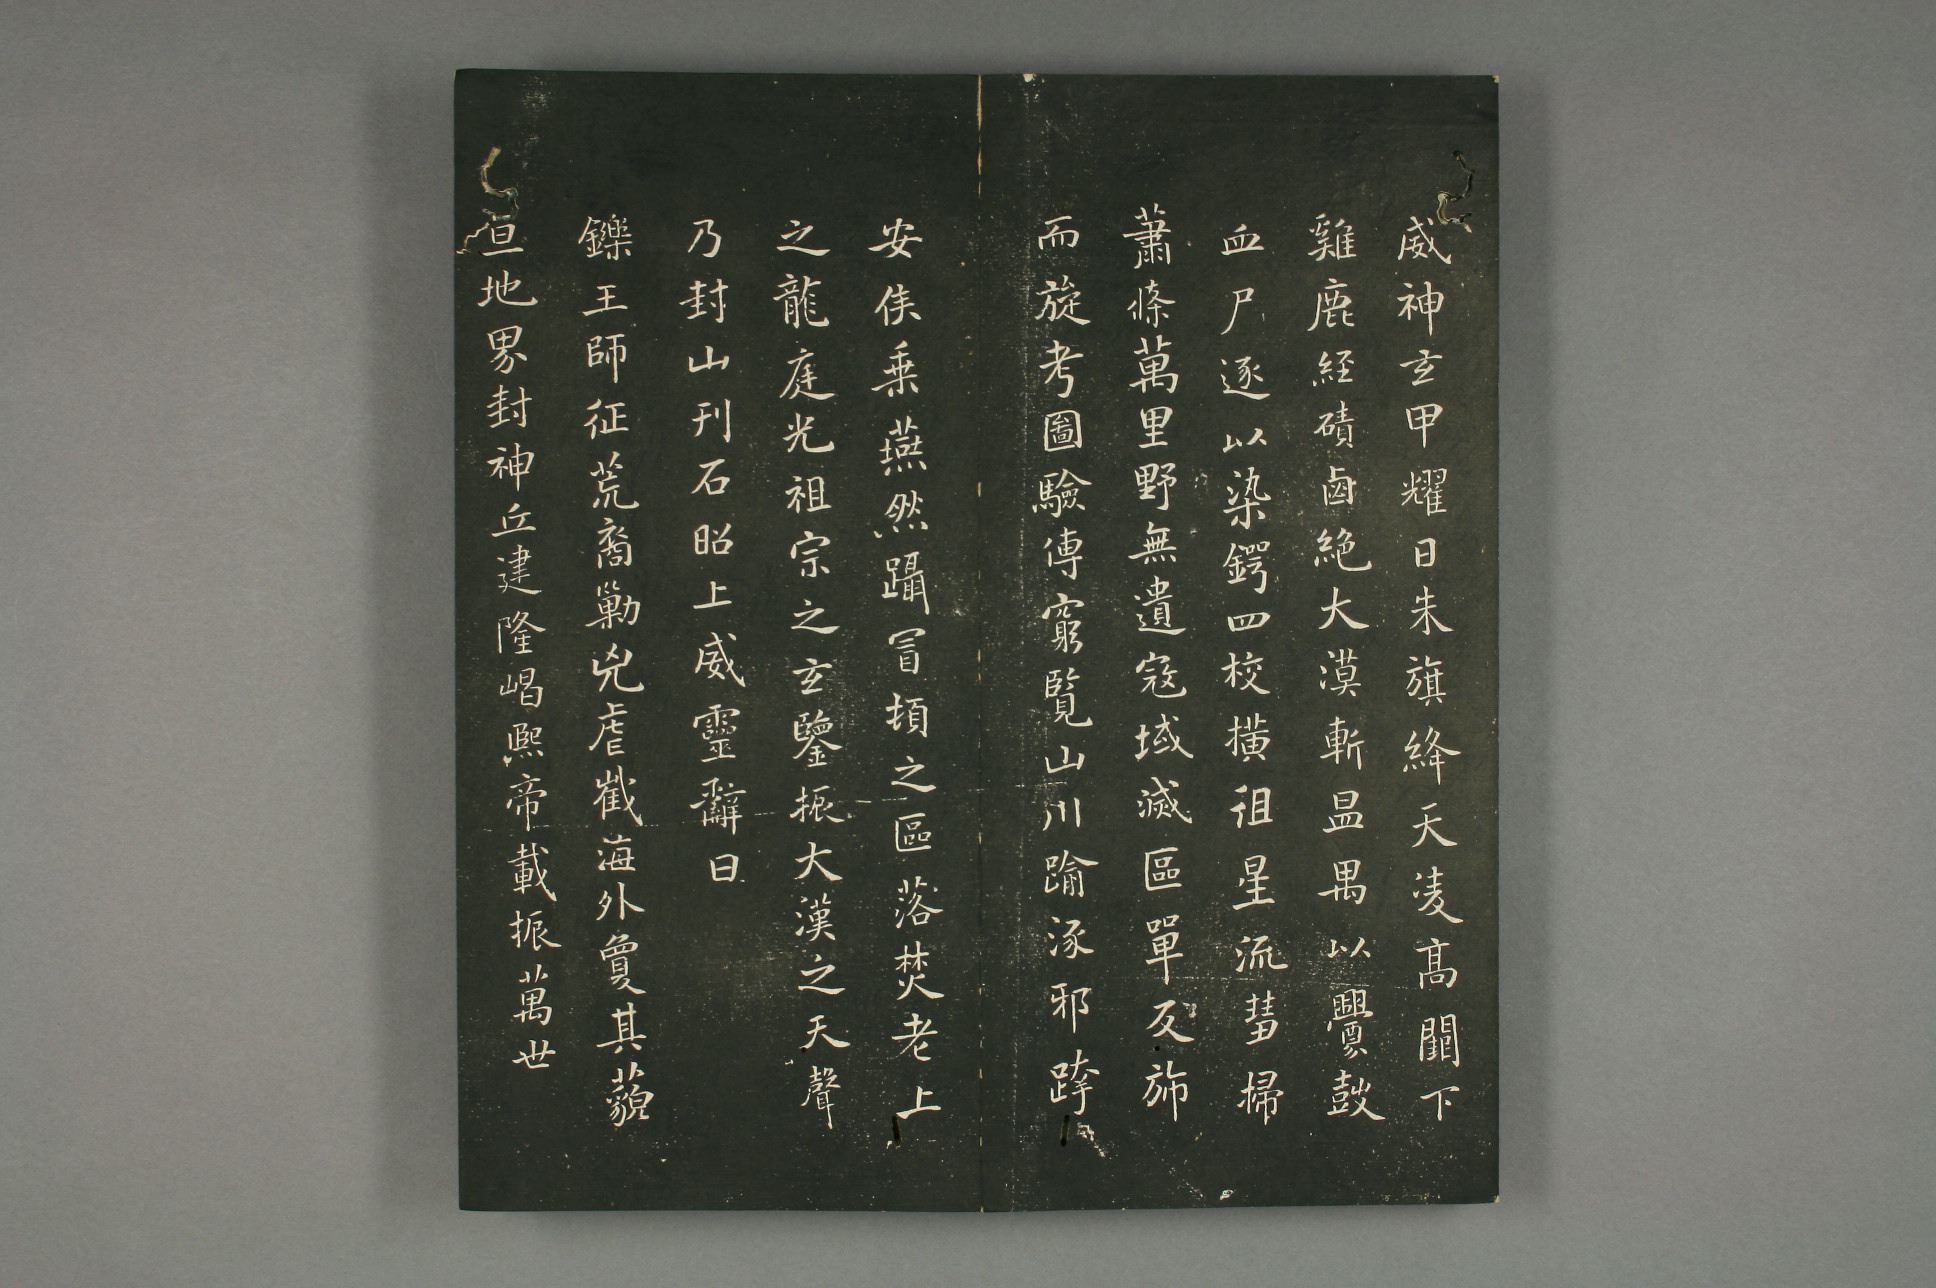 威神玄甲耀日朱旗絳天淩高闕下
雞鹿経磧鹵絶大漠斬昷禺以釁鼓
血尸逐以染鍔四校撗徂星流彗掃
蕭條萬里野無遺寇域滅區單反斾
而旋考圖驗傳窮覽山川踰涿邪跨
安侯乗燕然躡冒頓之區落焚老上
之龍庭光祖宗之玄鑒振大漢之天聲
乃封山刊石昭上威靈辭曰
鑠王師征荒裔勦兇虐截海外敻其藐
亘地界封神丘建隆嵑熙帝載振萬世